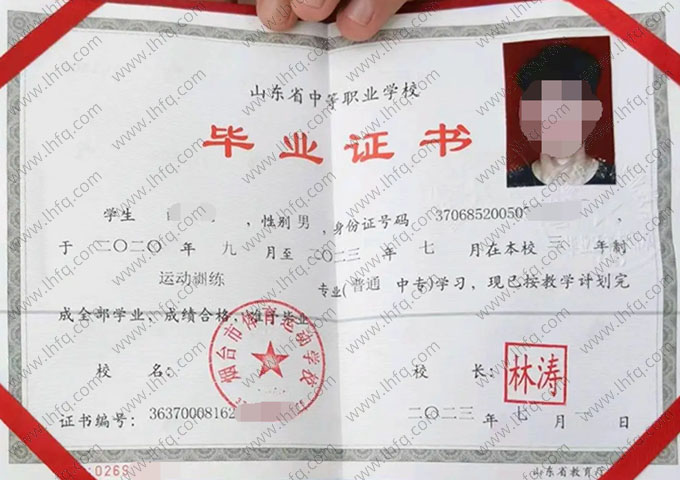 山东省中等职业学校
毕业证书
学生 ，性别 男 ，身份证号码 37068520050 ，
于 二〇二〇 年 九 月至 二〇二三 年 七 月在本校 三 年制
运动训练 专业(普通 中专)学习，现已按教学计划完
成全部学业、成绩合格，准予毕业
校 名： 校 长：
烟台市体育运动学校
林涛
证书编号： 36370008162 二〇二三 年 七 月 一 日
:026S 山东省教育厅
www.lhfq.com